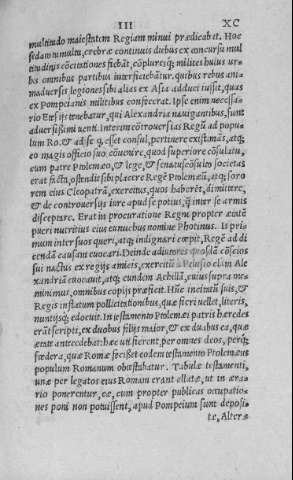 III XC
multitudo maiestatem Regiam minui prædicabat. Hoc
sedato tumultu, crebræ continuis duobus ex concursu mul
titudinis cōcitationes fiebāt, cōpluresq́; milites huius ur-
bis omnibus partibus interficiebātur. quibus rebus ani-
maduersis legiones sibi alias ex Asia adduci iussit, quas
ex Pompeianis militibus confecerat. Ipse enim necessa-
rio Etesijs tenebatur, qui Alexandria nauigantibus, sunt
aduersissimi uenti. Interim cōtrouersias Regū ad popu-
lum Ro. & ad se q̃, esset consul, pertinere existimās, atq;
eo magis officio suo cōuenire, quod superiore cōsulatu,
cum patre Ptolemæo, & lege, & senatuscōsulto societas
erat facta, ostendit sibi placere Regē Ptolemæū, atq; soro
rem eius Cleopatrā, exercitus, quos haberēt, dimittere,
& de controuersijs iure apud se potius, q̃ inter se armis
disceptare. Erat in procuratione Regni propter ætatē
pueri nutritius eius eunuchus nomine Photinus. Is pri-
mum inter suos queri, atq; indignari cœpit, Regē ad di
cendā causam euocari. Deinde adiutores quosdā cōscios
sui nactus ex regijs amicis, exercitū à Pelusio clàm Ale
xandriā euocauit, atq; eundem Achillā, cuius supra me
minimus, omnibus copijs præfecit. Hūc incitatū suis, &
Regis inflatum pollicitationibus, quæ fieri uellet, literis,
nuntijsq; edocuit. In testamento Ptolemæi patris hæredes
erāt scripti, ex duobus filijs maior, & ex duabus ea, quæ
ætate antecedebat: hæc uti fierent, per omnes deos, perq́;
fœdera, quæ Romæ fecisset eodem testamento Ptolemæus
populum Romanum obtestabatur. Tabulæ testamenti,
unæ per legatos eius Romam erant allatæ, ut in æra-
rio ponerentur, eæ, cum propter publicas occupatio-
nes poni non potuissent, apud Pompeium sunt deposi-
tæ, Alteræ